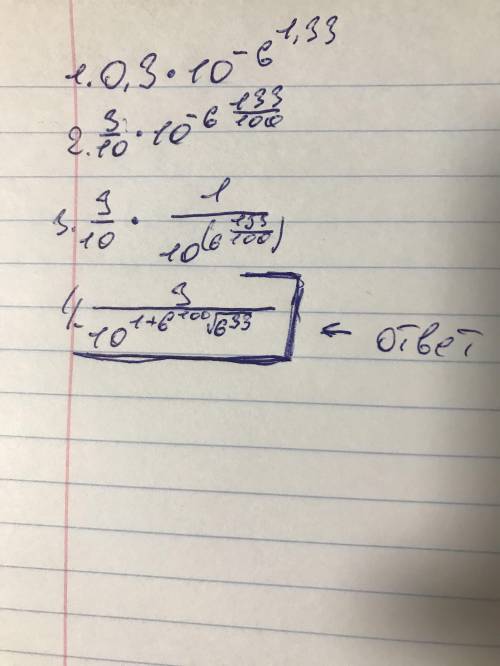 1. 0,3 · 10^-6^1,33
2. 3/10 · 10^-6^133/100
3. 3/10 · 1/10^(6^133/100)
4. 3/10^1+6^100√6^33 ← ответ